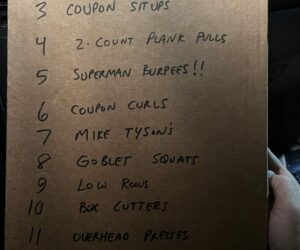 3 COUPON SITUPS
4 2-COUNT PLANK PULLS
5 SUPERMAN BURPEES!!
6 COUPON CURLS
7 MIKE TYSON'S
8 GOBLET SQUATS
9 LOW ROWS
10 BOX CUTTERS
11 OVERHEAD PRESSES